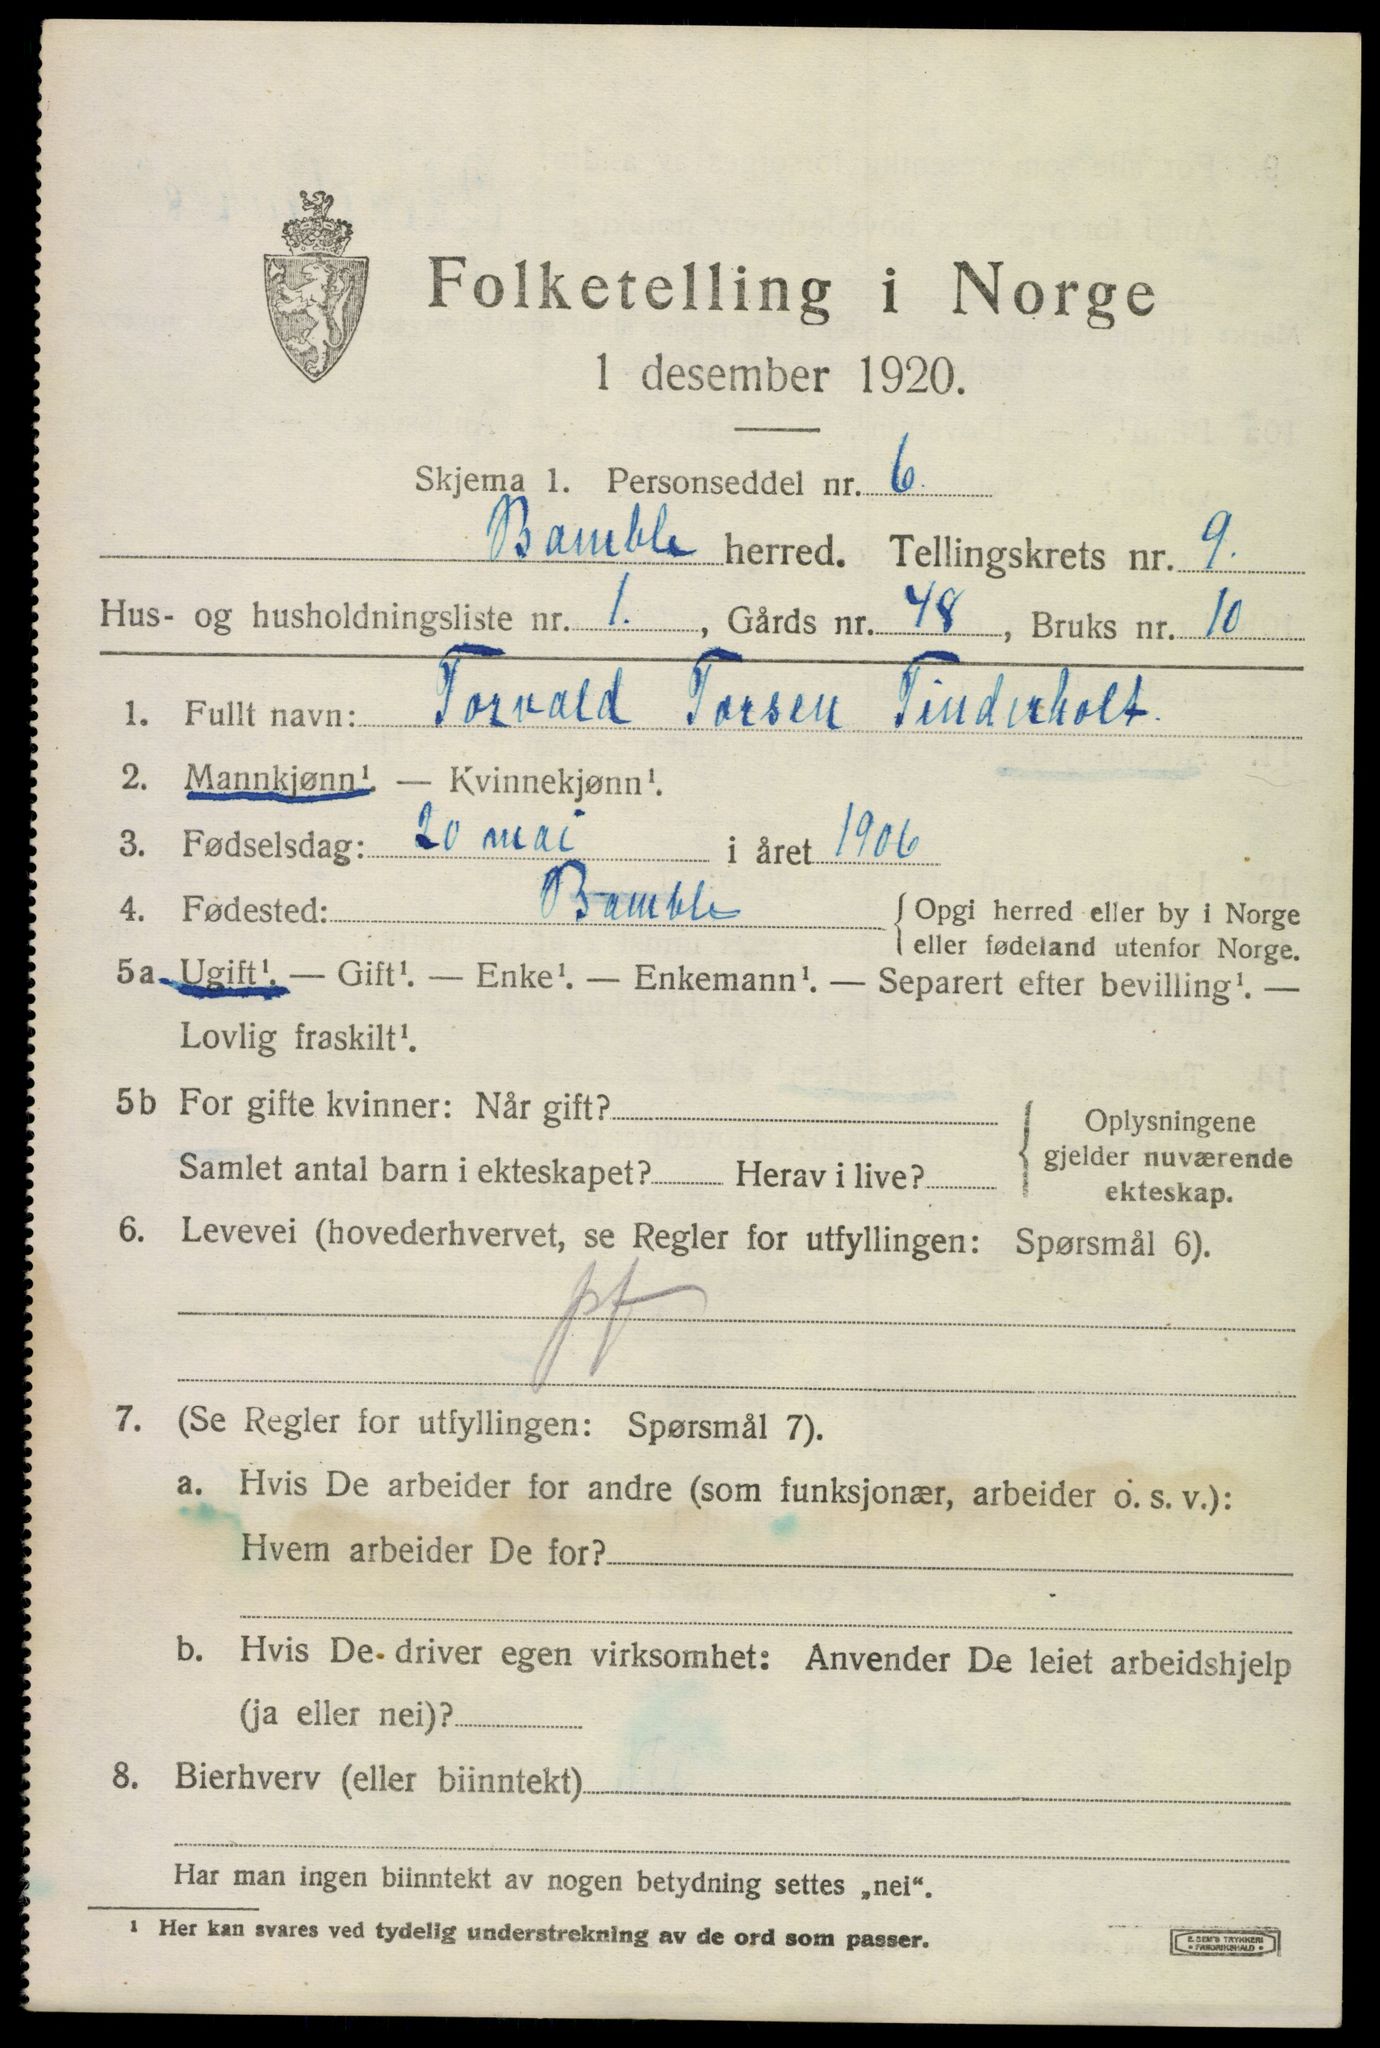 Folketelling i Norge
1 desember 1920.
Skjema 1. Personseddel nr. 6.
Bamble herred. Tellingskrets nr. 9.
Hus- og husholdningsliste nr. 1., Gårds nr. 48, Bruks nr. 10
1. Fullt navn: Torvald Torsen Tinderholt.
2. Mannkjønn¹. — Kvinnekjønn¹.
3. Fødselsdag: 20 mai i året 1906
4. Fødested: Bamble { Opgi herred eller by i Norge
eller fødeland utenfor Norge.
5a Ugift¹. — Gift¹. — Enke¹. — Enkemann¹. — Separert efter bevilling¹. —
Lovlig fraskilt¹.
5b For gifte kvinner: Når gift?
Samlet antal barn i ekteskapet? Herav i live?
Oplysningene
gjelder nuværende
ekteskap.
6. Levevei (hovederhvervet, se Regler for utfyllingen: Spørsmål 6).
pf
7. (Se Regler for utfyllingen: Spørsmål 7).
a. Hvis De arbeider for andre (som funksjonær, arbeider o. s. v.):
Hvem arbeider De for?
b. Hvis De driver egen virksomhet: Anvender De leiet arbeidshjelp
(ja eller nei)?
8. Bierhverv (eller biinntekt)
Har man ingen biinntekt av nogen betydning settes „nei“.
¹ Her kan svares ved tydelig understrekning av de ord som passer.
E. SEM'S TRYKKERI
• FREDRIKSHALD •